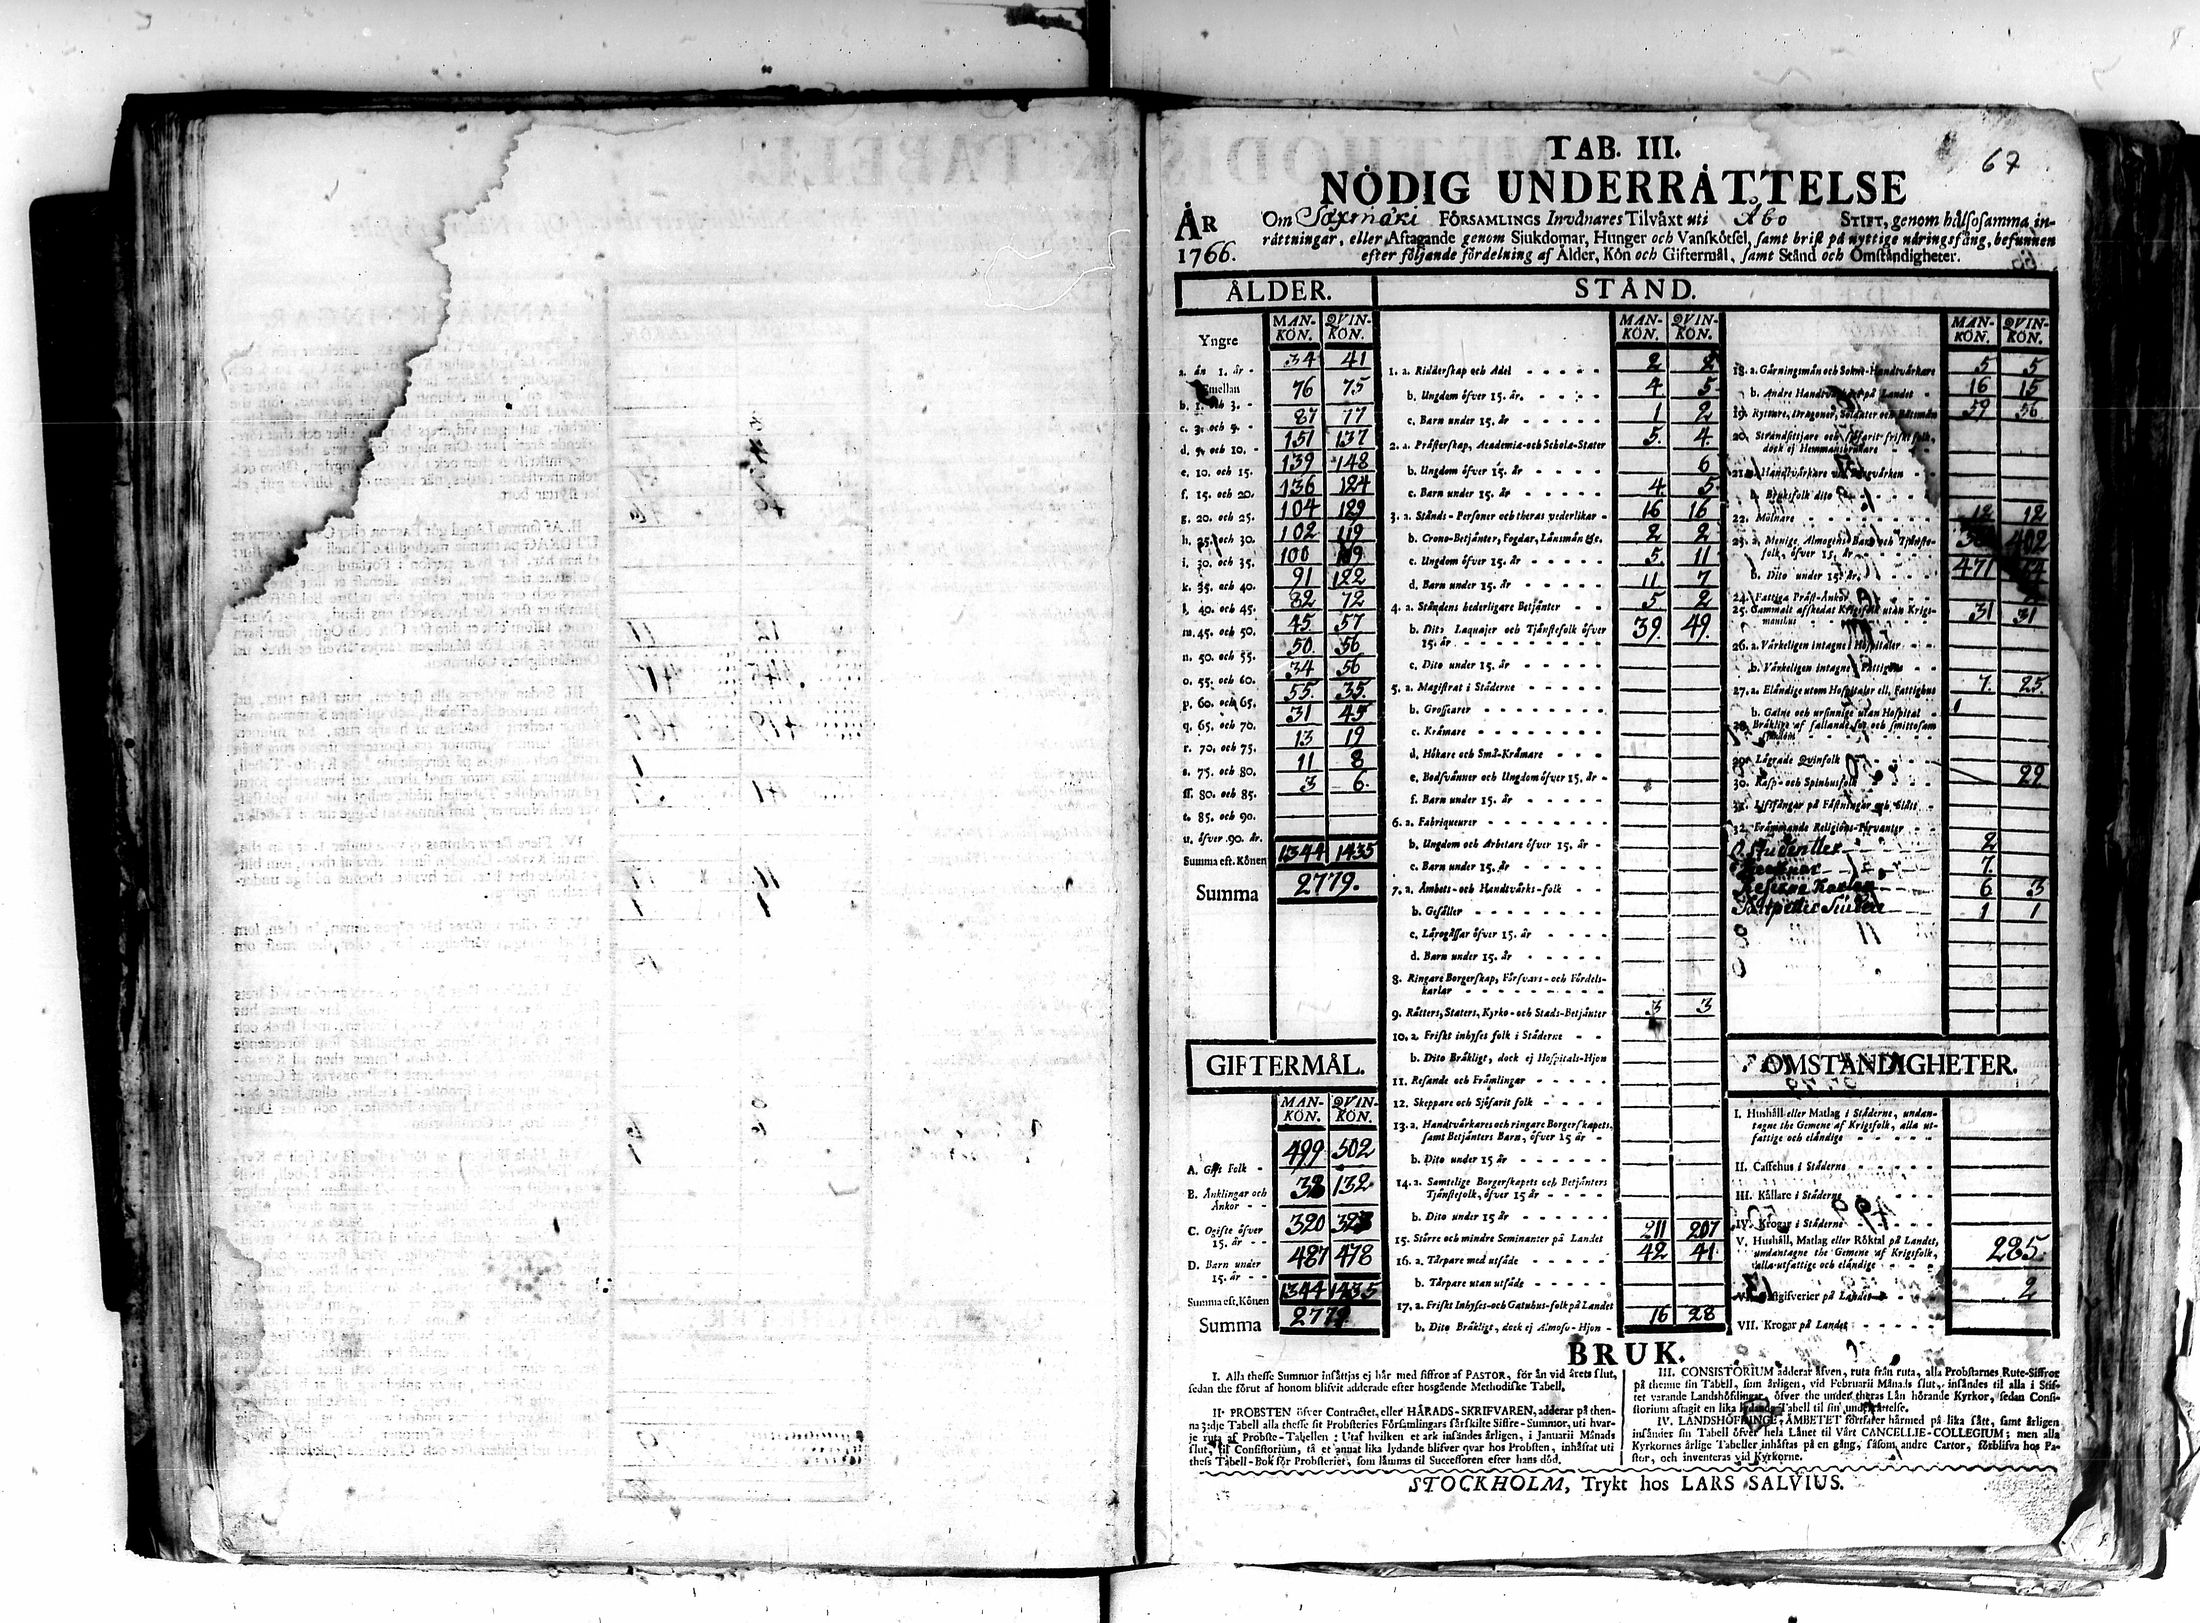 67
TAB. III.
NÖDIG UNDERRÅTTELSE
ÅR 1766.
Om Saxmäki FÖRSAMLINGS Invånares Tilväxt uti Åbo STIFT, genom hålsosamma in-
råttningar, eller Aftagande genom Sjukdomar, Hunger och Vanskötsel, samt brist på nyttige näringsfång, befunnen
efter följande fördelning af Ålder, Kön och Giftermål, samt Stånd och Omståndigheter.
ÅLDER.
Yngre MAN-KÖN. QVIN-KÖN.
a. än 1. år - 34 41
Emellan
b. 1. och 3. - 76 75
c. 3. och 5. - 87 77
d. 5. och 10. - 151 137
e. 10. och 15. 139 148
f. 15. och 20. 136 124
g. 20. och 25. 104 129
h. 25. och 30. 102 119
i. 30. och 35. 100 109
k. 35. och 40. 91 122
l. 40. och 45. 82 72
m. 45. och 50. 45 57
n. 50. och 55. 50 56
o. 55. och 60. 34 56
p. 60. och 65. 55 35
q. 65. och 70. 31 45
r. 70. och 75. 13 19
s. 75. och 80. 11 8
ss. 80. och 85. 3 6
t. 85. och 90.
u. öfver 90. år.
Summa eft. Könen 1344 1435
Summa 2779.
GIFTERMÅL.
MAN-KÖN. QVIN-KÖN.
A. Gift Folk - 499 502
B. Änklingar och Änkor - - 38 132
C. Ogifte öfver 15. år - - 320 323
D. Barn under 15. år - - 487 478
Summa eft. Könen 1344 1435
Summa 2779
STÅND.
MAN-KÖN. QVIN-KÖN.
1. a. Ridderskap och Adel - - - - - 2 2
b. Ungdom öfver 15. år. - - - - 4 5
c. Barn under 15. år - - - - - 1 2
2. a. Prästerskap, Academiæ-och Scholæ-Stater 5 4
b. Ungdom öfver 15. år - - - - - 6
c. Barn under 15. år - - - - - 4 5
3. a. Stånds-Personer och theras vederlikar - 16 16
b. Crono-Betjänter, Fogdar, Länsmän &c. 2 2
c. Ungdom öfver 15. år - - - - - 5 11
d. Barn under 15. år - - - - - 11 7
4. a. Ståndens hederligare Betjänter - - 5 2
b. Dito Laquajer och Tjänstefolk öfver
15. år - - - - - - - - - - 39 49
c. Dito under 15. år - - - - -
5. a. Magistrat i Städerne - - - - -
b. Grosscarer - - - - - - - -
c. Krämare - - - - - - - - -
d. Hökare och Små-Krämare - - - -
e. Bodsvänner och Ungdom öfver 15. år -
f. Barn under 15. år - - - - -
6. a. Fabriqueurer - - - - - - - -
b. Ungdom och Arbetare öfver 15. år -
c. Barn under 15. år - - - - -
7. a. Ämbets-och Handtvärks-folk - -
b. Gesäller - - - - - - - - -
c. Lärogåssar öfver 15. år - - - -
d. Barn under 15. år - - - - -
8. Ringare Borgerskap, Försvars-och Fördels-
karlar - - - - - - - - -
9. Rätters, Staters, Kyrko-och Stads-Betjänter 3 3
10. a. Friskt inhyses folk i Städerne - -
b. Dito Bräkligt, dock ej Hospitals-Hjon
11. Resande och Främlingar - - - - -
12. Skeppare och Sjöfarit folk - - - -
13. a. Handtvärkares och ringare Borgerskapets,
samt Betjänters Barn, öfver 15 år -
b. Dito under 15 år - - - - - -
14. a. Samtelige Borgerskapets och Betjänters
Tjänstefolk, öfver 15 år - - - -
b. Dito under 15 år - - - - - -
15. Större och mindre Hemmanter på Landet 211 207
16. a. Torpare med utsäde - - - - - 42 41
b. Torpare utan utsäde - - - - -
17. a. Friskt Inhyses-och Gatuhus-folk på Landet
b. Dito Bräkligt, dock ej Almosu-Hjon - 16 28
MAN-KÖN. QVIN-KÖN.
18. a. Gärningsmän och Sokne-Handtvärkare 5 5
b. Andre Handtvärkare på Landet - 16 15
19. Ryttare, Dragoner, Soldater och Båtsmän 59 56
20. Strandsittjare och Sjöfarit friskt folk,
dock ej Hemmansbrukare - - -
21. a. Handtvärkare vid Bergvärken - -
b. Bruksfolk dito - - - -
22. Mölnare - - - - - - - - - 12 12
23. a. Menige Almogens Barn och Tjänste-
folk, öfver 15. år - - - - - 402
b. Dito under 15. år - - - - 471
24. Fattiga Präst-Änkor - - - -
25. Gammalt afskedat Krigsfolk utan Krigs-
manshus - - - - - - 31 31
26. a. Värkeligen intagne i Hospitaler - -
b. Värkeligen intagne i Fattighus - -
27. a. Eländige utom Hospitaler ell. Fattighus 7 25
b. Galne och ursinnige utan Hospital - 1
28. Bräklige af fallande sot och smittosam
sjukdom - - - - - -
29. Lägrade Qvinfolk - - - - - 22
30. Rasp-och Spinhusfolk - - - -
31. Lifsfångar på Fästningar och Slått -
32. Främmande Religions-Förvanter -
Studenter 2
7
Reserve Karlar 6 3
1 1
OMSTÅNDIGHETER.
I. Hushåll eller Matlag i Städerne, undan-
tagne the Gemene af Krigsfolk, alla ut-
fattige och eländige - - - - -
II. Caffehus i Städerne - - - - -
III. Källare i Städerne - - - -
IV. Krogar i Städerne - - - - -
V. Hushåll, Matlag eller Röktal på Landet,
undantagne the Gemene af Krigsfolk,
alla utfattige och eländige - - - - 285
VI. Gästgifverier på Landet - - - 2
VII. Krogar på Landet - - - - -
BRUK.
I. Alla thesse Summor insättjas ej här med siffror af PASTOR, för än vid årets slut,
sedan the förut af honom blifvit adderade efter hosgående Methodiske Tabell.
II. PROBSTEN öfver Contractet, eller HÄRADS-SKRIFVAREN, adderar på then-
na 3:dje Tabell alla thesse sit Probsteries Församlingars särskilte Siffre-Summor, uti hvar-
je ruta af Probste-Tabellen: Utaf hvilken et ark insändes årligen, i Januarii Månads
slut, til Consistorium, tå et annat lika lydande blifver qvar hos Probsten, inhäftat uti
thess Tabell-Bok för Probsteriet, som lämnas til Successoren efter hans död.
III. CONSISTORIUM adderar äfven, ruta från ruta, alla Probstarnes Rute-Siffror
på thenne sin Tabell, som årligen, vid Februarii Månads slut, insändes til alla i Stif-
tet varande Landshöfdingar, öfver the under theras Län hörande Kyrkor, sedan Consi-
storium aftagit en lika lydande Tabell til sin underrättelse.
IV. LANDSHÖFDINGE-ÄMBETET författar härmed på lika sätt, samt årligen
insänder sin Tabell öfver hela Länet til Vårt CANCELLIE-COLLEGIUM; men alla
Kyrkornes årlige Tabeller inhäftas på en gång, såsom andre Cartor, förblifva hos Pa-
stor, och inventeras vid Kyrkorne.
STOCKHOLM, Trykt hos LARS SALVIUS.